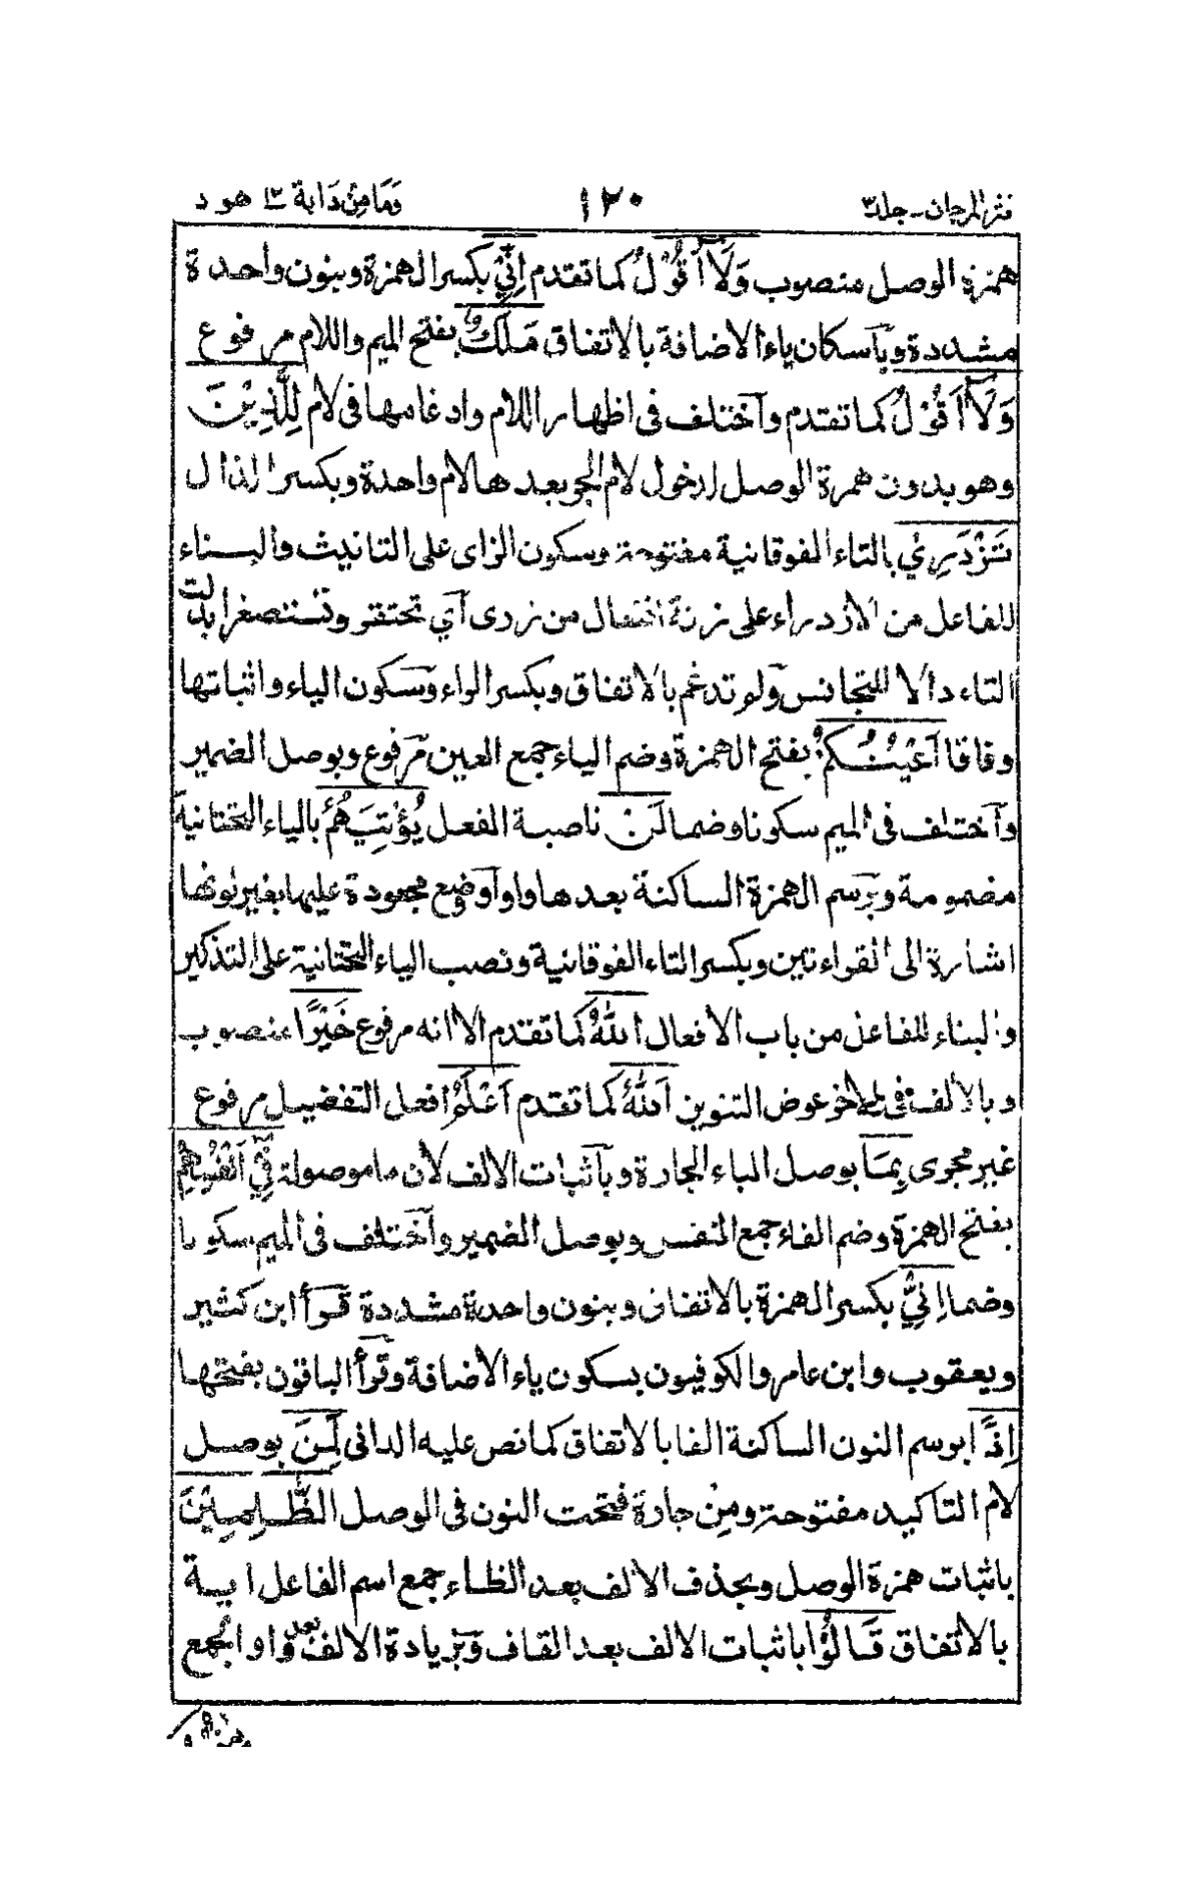 نثر المرجان ـ جلد ٣ ١٢٠ وَمَا مِنْ دَابة ١٢ هود
همزة الوصل منصوب وَلَآ اَقُوْلُ كما تقدم اِنِّيْ بكسر الهمزة وبنون واحدة
مشددة وبآسكان ياء الاضافة بالاتفاق مَلَكٌ بفتح الميم واللام مرفوع
وَلَآ اَقُوْلُ كما تقدم وآختلف فى اظهار اللام وادغامها فى لام لِلَّذِيْنَ
وهو بدون همزة الوصل لدخول لام الجر بعدها لام واحدة وبكسر الذال
تَزْدَرِيْ بالتاء الفوقانية مفتوحة وسكون الزاى على التانيث والبناء
للفاعل من الازدراء على زنة افتعال من زرى آي تحتقر وتستصغر ابدلت
التاء دالا للتجانس ولم تدغم بالاتفاق وبكسر الراء وسكون الياء واثباتها
وفاقا اَعْيُنُكُمْ بفتح الهمزة وضم الياء جمع العين مرفوع وبوصل الضمير
وآختلف فى الميم سكونا وضما لَنْ ناصبة الفعل يُؤْتِيَهُمُ بالياء التحتانية
مضمومة وبرسم الهمزة الساكنة بعدها واوا وضع مجعودة عليها بغير لونها
اشارة الى القراءتين وبكسر التاء الفوقانية ونصب الياء التحتانية على التذكير
والبناء للفاعل من باب الافعال اللهُ كما تقدم الا انه مرفوع خَيْرًا منصوب
وبالالف فى الاخر عوض التنوين اَللهُ كما تقدم اَعْلَمُ افعل التفضيل مرفوع
غير مجرى بِمَا بوصل الباء الجارة وبآثبات الالف لان ما موصولة فِيْٓ اَنْفُسِهِمْ
بفتح الهمزة وضم الفاء جمع النفس وبوصل الضمير وآختلف فى الميم سكونا
وضما اِنِّيْ بكسر الهمزة بالاتفاق وبنون واحدة مشددة قرأ ابن كثير
ويعقوب وابن عامر والكوفيون بسكون ياء الاضافة وقرأ الباقون بفتحها
اِذًا برسم النون الساكنة الفا بالاتفاق كما نص عليه الدانى لَمِنَ بوصل
لام التاكيد مفتوحة ومِنْ جارة فتحت النون فى الوصل الظّٰلِمِيْنَ
باثبات همزة الوصل وبحذف الالف بعد الظاء جمع اسم الفاعل اية
بالاتفاق قَالُوْا باثبات الالف بعد القاف وبزيادة الالف بعد واو الجمع